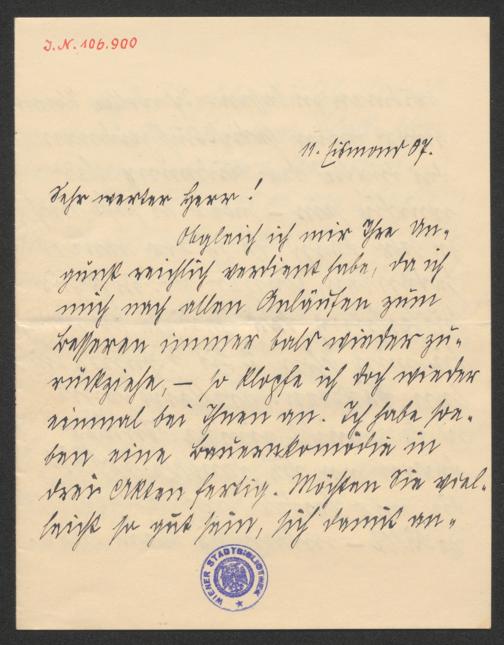 J.N. 106.900
11. Eismond 07.
Sehr werter Herr!
Obgleich ich mir Ihre Un-
gunst reichlich verdient habe, da ich
mich nach allen Anläufen zum
Besseren immer bald wieder zu-
rückziehe, – so klopfe ich doch wieder
einmal bei Ihnen an. Ich habe soe-
ben eine Bauernkomödie in
drei Akten fertig. Möchten Sie viel-
leicht so gut sein, sich damit an-
WIENER STADTBIBLIOTHEK